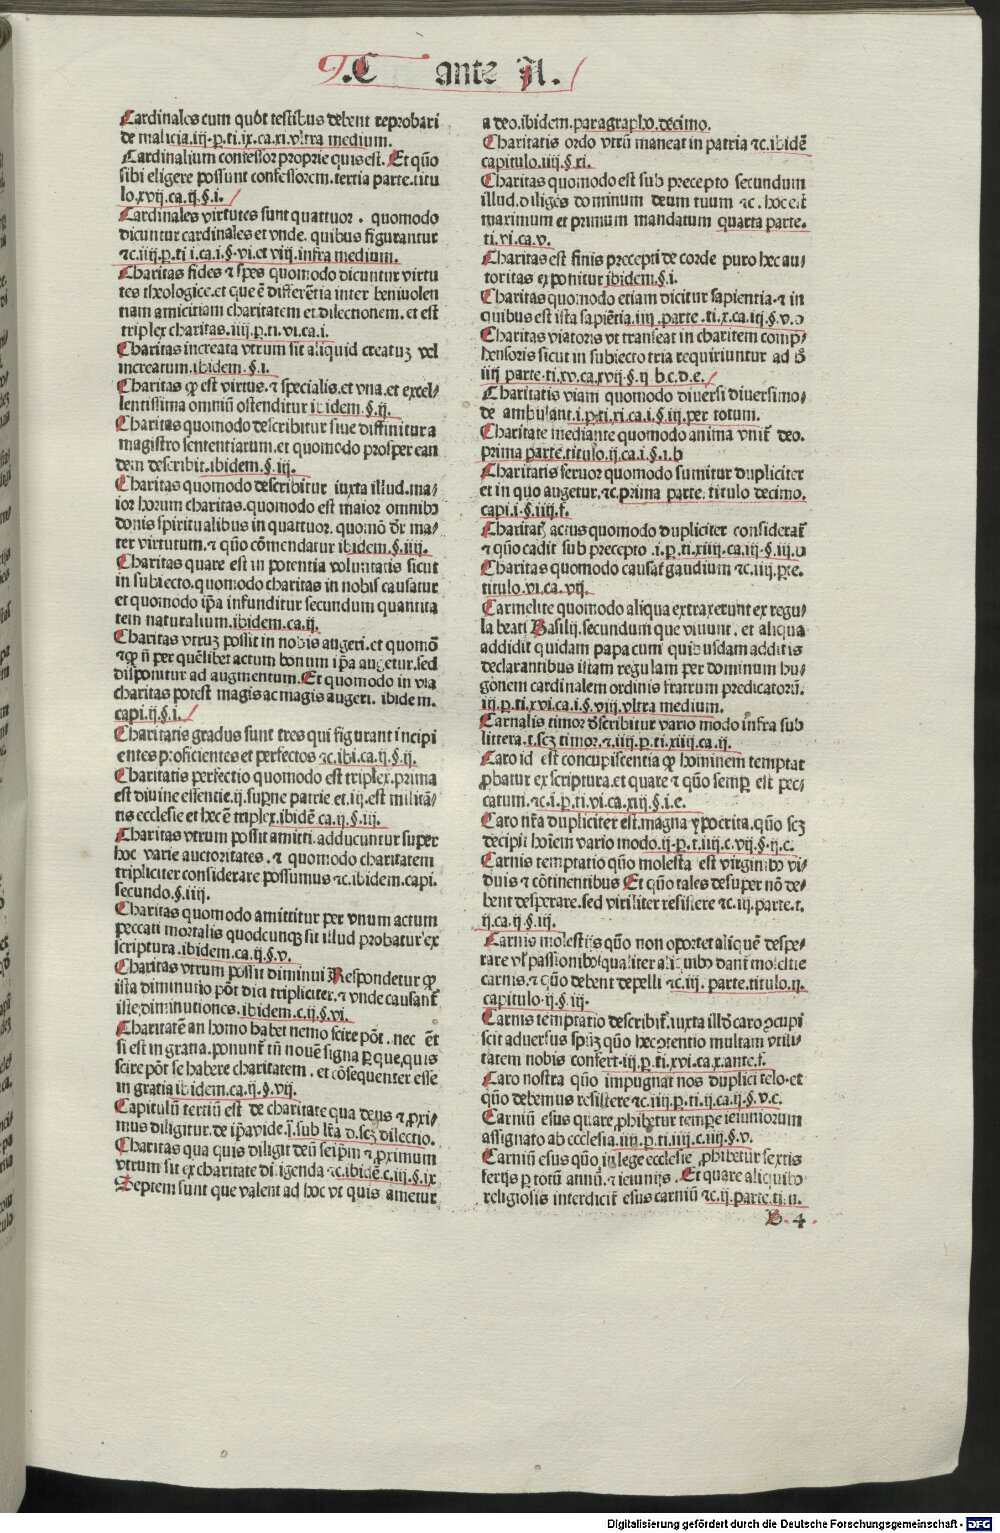 .C ante A.
Cardinales cum quot testibus debent reprobari
de malicia.iij.p.ti.ix.ca.xi.vltra medium.
Cardinalium confessor proprie quis est. Et quo
sibi eligere possunt confessorem.tertia parte.titu
lo.xvij.ca.ij.§.i.
Cardinales virtutes sunt quattuor. quomodo
dicuntur cardinales et vnde. quibus figurantur
⁊c.iiij.p.ti i.ca.i.§.vi.et viij.infra medium.
Charitas fides ⁊ spes quomodo dicuntur virtu
tes theologice.et que ē differētia inter beniuolen
tiam amicitiam charitatem et dilectionem. et est
triplex charitas.iiij.p.ti.vi.ca.i.
Charitas increata vtrum sit aliquid creatuȝ vel
increatum.ibidem.§.i.
Charitas ꝙ est virtus.⁊ specialis.et vna.et excel/
lentissima omniū ostenditur ibidem.§.ij.
Charitas quomodo describitur siue diffinitur a
magistro sententiarum.et quomodo prosper ean
dem describit.ibidem.§.iij.
Charitas quomodo describitur iuxta illud.ma/
ior horum charitas.quomodo est maior omnibꝰ
donis spiritualibus in quattuor. quomō dr̄ ma/
ter virtutum.⁊ qūo cōmendatur ibidem.§.iiij.
Charitas quare est in potentia voluntatis sicut
in subiecto.quomodo charitas in nobis causatur
et quomodo ip̄a infunditur secundum quantita
tem naturalium.ibidem.ca.ij.
Charitas vtruȝ possit in nobis augeri.et quomō
⁊ ꝙ ñ per quēlibet actum bonum ip̄a augetur.sed
disponitur ad augmentum.Et quomodo in via
charitas potest magis ac magis augeri. ibidem.
capi.ij.§.i.
Charitatis gradus sunt tres qui figurant incipi
entes proficientes et perfectos ⁊c.ibi.ca.ij.§.ij.
Charitatis perfectio quomodo est triplex.prima
est diuine essentie.ij.supne patrie et.iij.est militā/
tis ecclesie et hec ē triplex.ibidē ca.ij.§.iij.
Charitas vtrum possit amitti.adducuntur super
hoc varie auctoritates.⁊ quomodo charitatem
tripliciter considerare possumus ⁊c.ibidem.capi.
secundo.§.iiij.
Charitas quomodo amittitur per vnum actum
peccati mortalis quodcunqȝ sit illud probatur ex
scriptura.ibidem.ca.ij.§.v.
Charitas vtrum possit diminui Respondetur ꝙ
ista diminutio pōt dici tripliciter.⁊ vnde causant̄
iste diminutiones.ibidem.c.ij.§.vi.
Charitatē an homo habet nemo scire pōt. nec ēt
si est in gratia.ponunt̄ tn̄ nouē signa p que,quis
scire pōt se habere charitatem. et cōsequenter esse
in gratia ibidem.ca.ij.§.vij.
Capitulū tertiū est de charitate qua deus ⁊ ꝓxi/
mus diligitur.de ip̄a vide.j.sub lr̄a d.scȝ dilectio.
Charitas qua quis diligit deū seip̄m ⁊ ꝓximum
vtrum sit ex charitate diligenda ⁊c.ibidē c.iij.§.ix
Septem sunt que valent ad hoc vt quis ametur
a deo.ibidem.paragrapho.decimo.
Charitatis ordo vtrū maneat in patria ⁊c.ibidē
capitulo.iiij.§.xi.
Charitas quomodo est sub precepto secundum
illud.diliges dominum deum tuum ⁊c. hoc est
maximum et primum mandatum quarta parte.
ti.vi.ca.v.
Charitas est finis precepti de corde puro hec au/
toritas exponitur ibidem.§.i.
Charitas quomodo etiam dicitur sapientia.⁊ in
quibus est ista sapiētia.iiij.parte.ti.x.ca.iij.§.v.
Charitas viatoris vt transeat in charitem comp/
hensoris sicut in subiecto tria requiriuntur ad d
iiij parte.ti.xv.ca.xvij.§.ij b.c.d.e.
Charitatis viam quomodo diuersi diuersimo/
de ambulant.i.p.ti.xi.ca.i.§.iij.per totum.
Charitate mediante quomodo anima vnit̄ deo.
prima parte.titulo.ij.ca.i.§.i.b
Charitatis feruor quomodo sumitur dupliciter
et in quo augetur.⁊c.prima parte.titulo decimo.
capi.i.§.iiij.f.
Charitatꝭ actus quomodo dupliciter considerat̄
⁊ qūo cadit sub precepto.i.p.ti.xiiij.ca.iij.§.iij.
Charitas quomodo causat̄ gaudium ⁊c.iiij.pte.
titulo.vi.ca.vij.
Carmelite quomodo aliqua extraxerunt ex regu/
la beati Basilij.secundum que viuunt. et aliqua
addidit quidam papa cum quibusdam additis
declarantibus istam regulam per dominum hu/
gonem cardinalem ordinis fratrum predicatorū.
iij.p.ti.xvi.ca.i.§.viij.vltra medium.
Carnalis timor dscribitur vario modo infra sub
littera.t.scȝ timor.⁊.iiij.p.ti.xiiij.ca.ij.
Caro id est concupiscentia ꝙ hominem temptat
ꝓbatur ex scriptura.et quare ⁊ qūo semp est pec/
catum.⁊c.i.p.ti.vi.ca.xiij.§.i.e.
Caro nr̄a dupliciter est.magna ypocrita.qūo scȝ
decipit hoīem vario modo.ij.p.t.iiij.c.vij.§.ij.c.
Carnis temptatio qūo molesta est virginibꝰ vi/
duis ⁊ cōtinentibus Et qūo tales desuper nō de/
bent desperare.sed viriliter resistere ⁊c.iij.parte.t.
ij.ca.ij.§.iij.
Carnis molestijs qūo non oportet aliquē despe/
rare vl̄ passionibꝰ qualiter aliquibꝰ dant̄ molestie
carnis.⁊ qūo debent depelli ⁊c.iij. parte.titulo.ij.
capitulo.ij.§.iij.
Carnis temptatio describit̄.iuxta illđ caro ꝯcupi
scit aduersus sp̄ūȝ qūo hec ꝯtentio multam vtili/
tatem nobis confert.iij.p.ti.xvi.ca.x.ante.f.
Caro nostra qūo impugnat nos duplici telo.et
qūo debemus resistere ⁊c.iiij.p.ti.ij.ca.ij.§.v.c.
Carniū esus quare ꝓhibetur tempe ieiuniorum
assignato ab ecclesia.iiij.p.ti.iiij.c.iiij.§.v.
Carniū esus qūo in lege ecclesie ꝓhibetur sextis
ferijs p totū annū.⁊ ieiunijs. Et quare aliquibꝰ
religiosis interdicit̄ esus carniū ⁊c.ij.parte.ti.ii.
B.4.
Digitalisierung gefördert durch die Deutsche Forschungsgemeinschaft - DFG